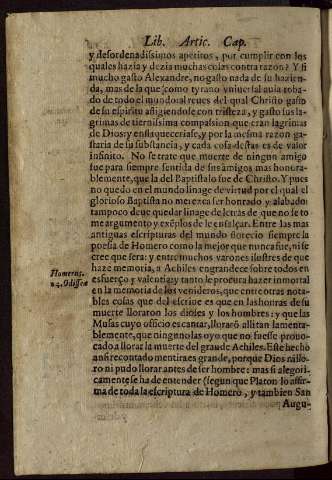 Lib. Artic. Cap.
y desordenadissimos apetitos, por cumplir con los
quales hazia y dezia muchas cosas contra razon? Y si
mucho gasto Alexandre, no gasto nada de su hazien
da, mas de la que como tyrano vniuersal auia roba-
do de todo el mundo al reues del qual Christo gasto
de su espiritu afligiendole con tristeza, y gasto sus la
grimas de tiernissima compassion que eran lagrimas
de Dios: y enflaquecerase, y por la mesma razon gas-
taria de su substancia, y cada cosa destas es de valor
infinito. No se trate que muerte de ningun amigo
fue para siempre sentida de sus amigos mas honra-
blemente, que la del Baptista lo fue de Christo. Y pues
no quedo en el mundo linage de virtud por el qual el
glorioso Baptista no merezca ser honrado y alabado:
tampoco deue quedar linage de letras de que no se to
me argumento y exẽplos de le ensalçar. Entre las mas
antiguas escripturas del mundo florecio siempre la
poesia de Homero como la mejor que nunca fue, ni se
cree que sera: y entre muchos varones ilustres de que
haze memoria, a Achiles engrandece sobre todos en
Homerus.
24. Odissea
esfuerço y valentia: y tanto le procura hazer inmortal
en la memoria de los venideros, que entre otras nota-
bles cosas que del escriue es que en las honras de su
muerte lloraron los dioses y los hombres: y que las
Musas cuyo officio es cantar, lloraro allitan lamenta-
blemente, que ningun o las oyo que no fuesse prouo-
cado a llorar la muerte del grande Achiles. Este hecho
ansi recontado mentira es grande, porque Dios ni llo-
ro ni pudo llorar antes de ser hombre: mas si alegori-
camente se ha de entender (segun que Platon lo affir-
ma de toda la escriptura de Homero, y tambien San
Augu-